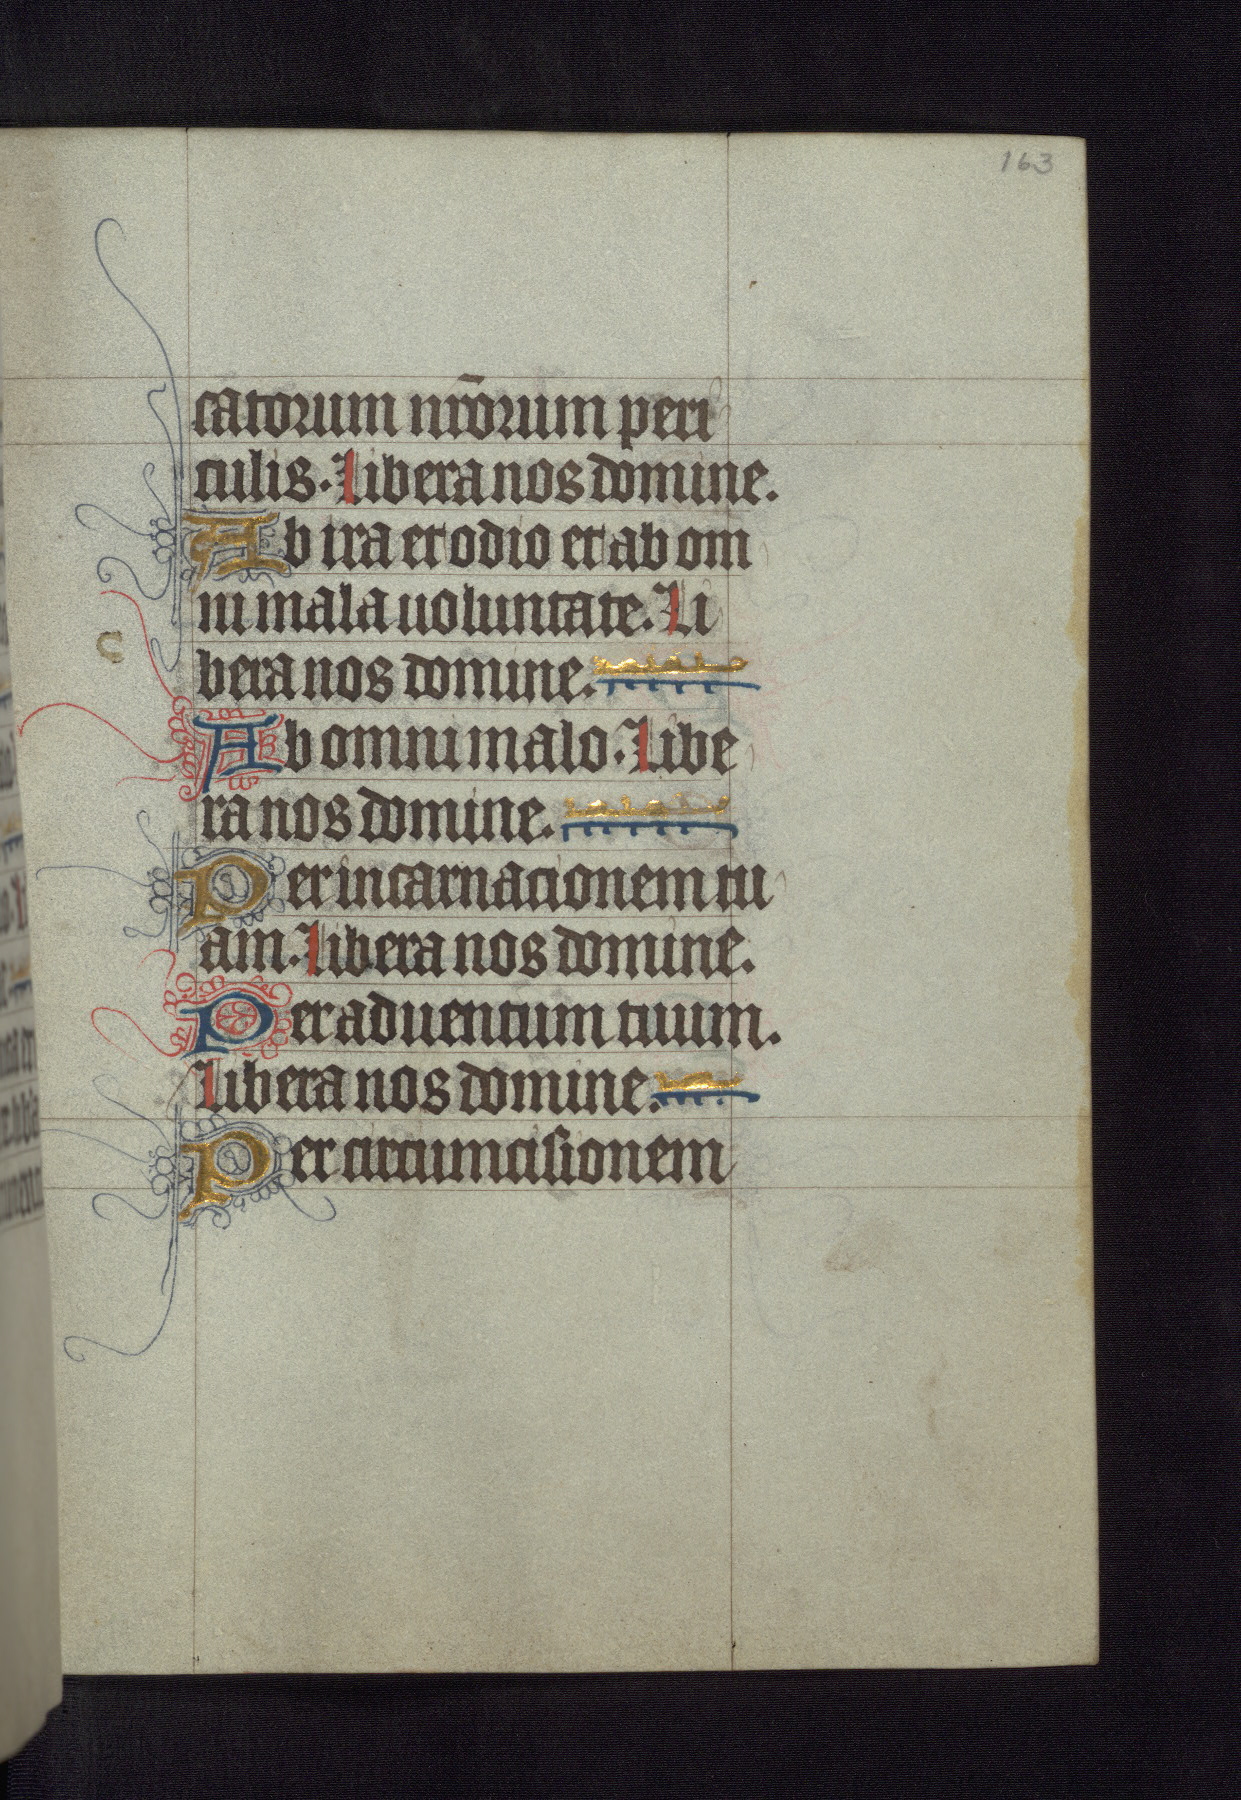 163
catorum nr̄orum peri
culis. Libera nos domine.
Ab ira et odio et ab om
ni mala uoluntate. Li
bera nos domine.
c
Ab omni malo. Libe
ra nos domine.
Per incarnacionem tu
am. Libera nos domine.
Per aduentum tuum.
Libera nos domine.
Per circumcisionem